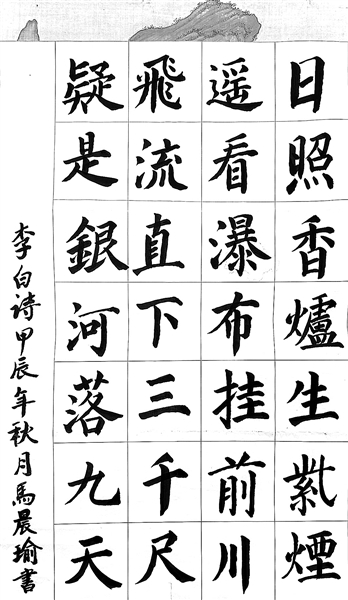 日照香爐生紫煙
遥看瀑布挂前川
飛流直下三千尺
疑是銀河落九天
李白诗甲辰年秋月馬晨瑜書